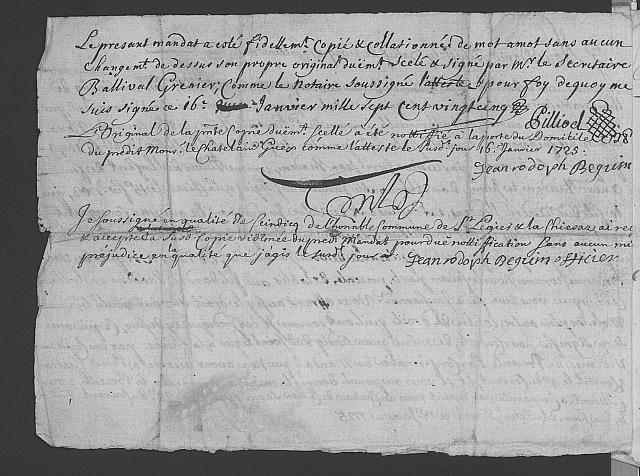 Le presant mandat a esté fidellemt. Copié & collationnée de mot a mot sans aucun
Changemt. de dessus son propre original duëmt. Scelé & signé par Mr. le Secretaire
Ballival Grenier, Comme le Notaire soussigné l'atteste & pour foy dequoy me
Suis signé ce 16e. Janvier mille Sept Cent vingt cinq
Pilliod
L'Original de la pnte Copie duëmt. Scellé a été nottiffié a la porte du Domicile
du prédit Monsr. le Chatelain Guex comme l'atteste le Susd. jour 16 Janvier 1725.
Jean rodolph Beguin
Je soussigné en qualité de Scindicq de l'honnble Commune de St. Legier & la Chiesaz ai re
& accepté la Susd. Copie du pred. Mandat pour due nottification Sans aucun
préjudice en la qualité que j'agis le Susd. jour
Jean rodolph Beguin officier